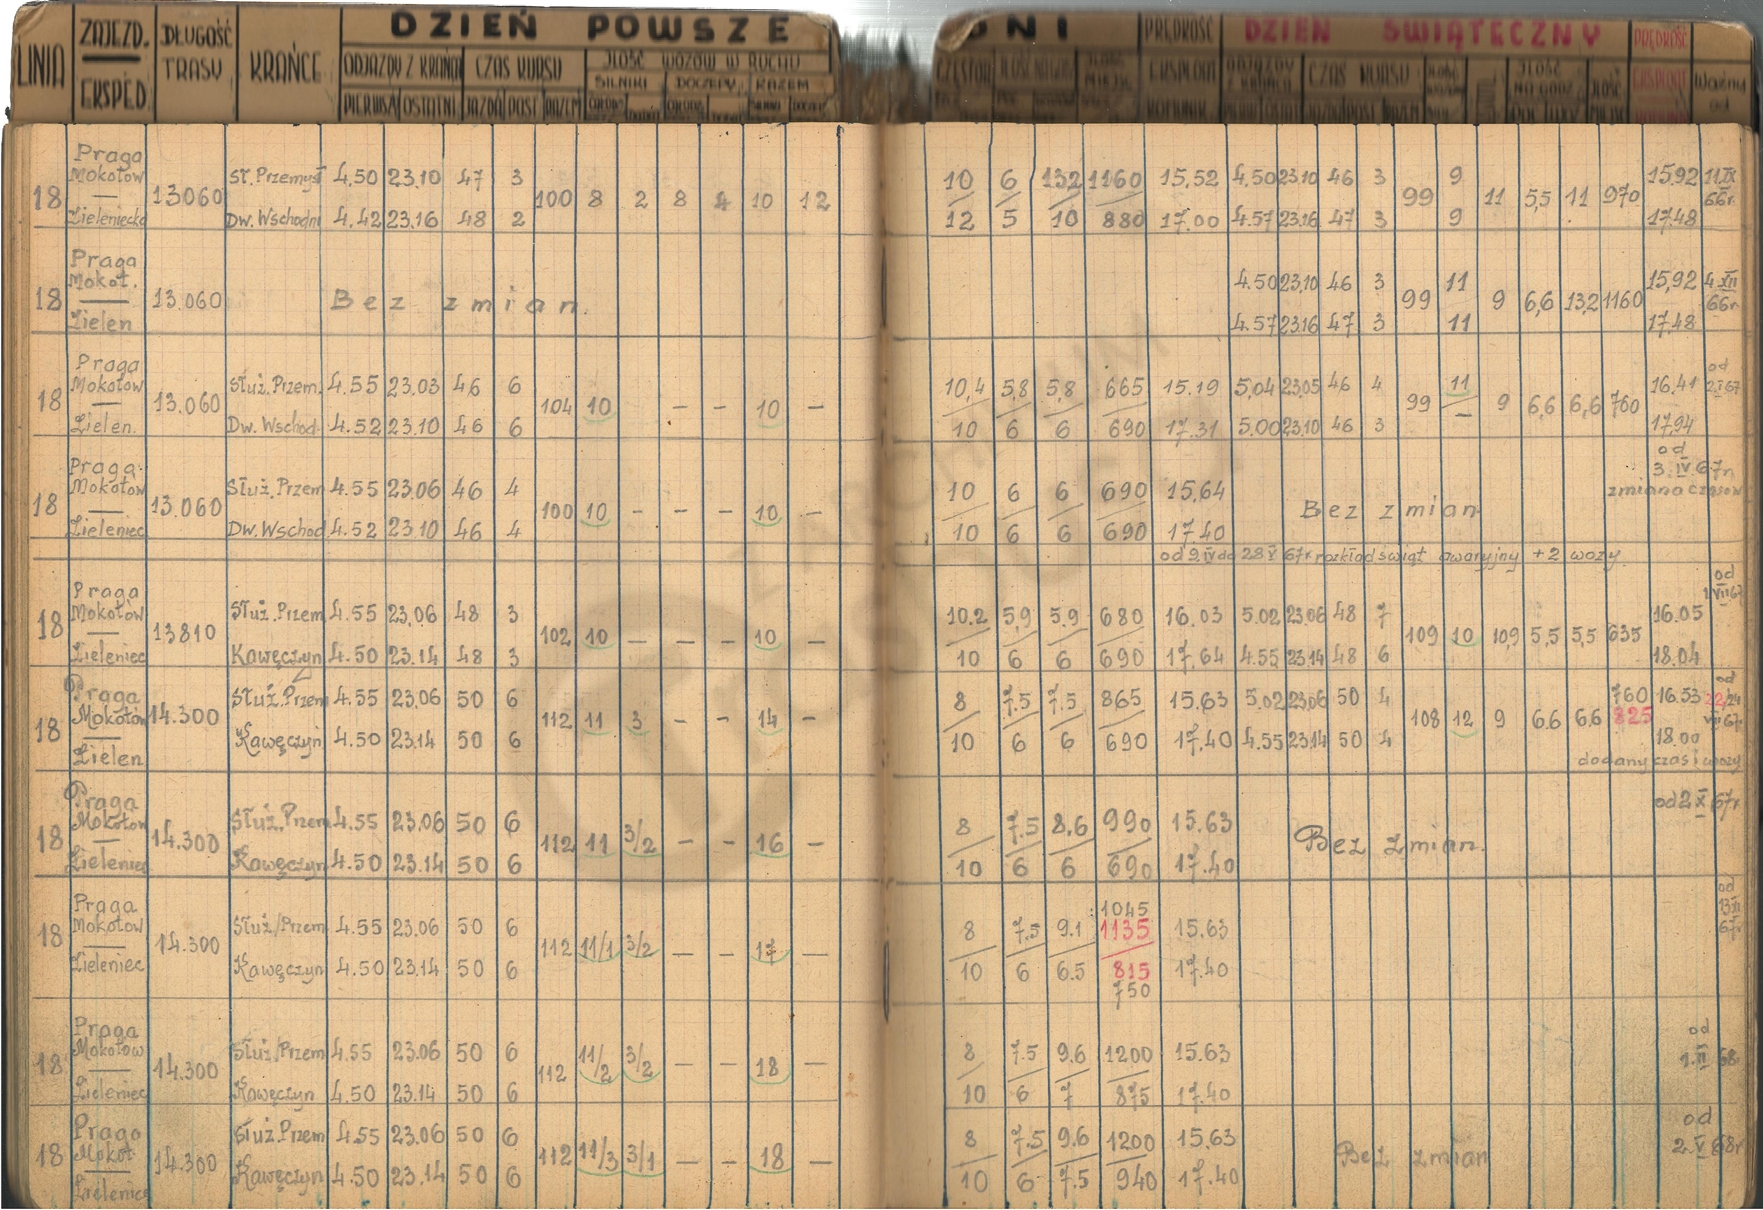 LINIA ZAJEZD. EKSPED. DŁUGOŚĆ TRASY KRAŃCE DZIEŃ POWSZE DNI PRĘDKOŚĆ EKSPLOAT DZIEŃ ŚWIĄTECZNY PRĘDKOŚĆ Ważny od
ODJAZDY Z KRAŃCA CZAS KURSU ILOŚĆ WOZÓW W RUCHU
SILNIKI DOCZEPY RAZEM
PIERWSZA OSTATNI JAZDA POST RAZEM
Praga
Mokotów
18 13060 St. Przemysł 4.50 23.10 47 3 100 8 2 8 4 10 12 10 6 132 1160 15,52 4,50 23.10 46 3 99 9 11 5,5 11 970 15,92 11.IX 66r.
Zieleniecka Dw. Wschodni 4.42 23.16 48 2 12 5 10 880 17.00 4.57 23.16 47 3 9 17.48
Praga
Mokot. 4.50 23,10 46 3 11 15,92 4 XII
18 13.060 Bez zmian. 99 9 6,6 13,2 1160 66r.
Zielen 4.57 23.16 47 3 11 17,48
Praga od
Mokotów Służ. Przem. 4.55 23.03 46 6 10,4 5,8 5,8 665 15.19 5,04 23.05 46 4 11 16.41 2.I.67
18 13.060 104 10 – – 10 – 99 9 6,6 6,6 760
Zielen. Dw. Wschod. 4.52 23.10 46 6 10 6 6 690 17.31 5.00 23.10 46 3 – 17,94
Praga od
Mokotów Służ. Przem 4.55 23.06 46 4 10 6 6 690 15,64 3. IV 67r.
zmiana czasów
18 13.060 100 10 – – – 10 – Bez zmian
Zieleniec Dw. Wschod. 4.52 23.10 46 4 10 6 6 690 17.40
od 9.IV do 28 V 67r. rozkład świąt awaryjny +2 wozy.
Praga od
Mokotów Służ. Przem 4.55 23,06 48 3 10.2 5,9 5.9 680 16.03 5.02 23.06 48 7 16.05 1 VII 67
18 13810 102 10 – – – 10 – 109 10 10,9 5,5 5,5 635
Zieleniec Kawęczyn 4.50 23.14 48 3 10 6 6 690 17,64 4.55 23.14 48 6 18.04
Praga Służ. Przem 4.55 23.06 50 6 8 7.5 7.5 865 15.63 5,02 23.06 50 4 760 16.53 od 22/24
18 Mokotów 14.300 112 11 3 – – 14 – 108 12 9 6.6 6,6 825 VII 67r.
Zielen Kawęczyn 4.50 23.14 50 6 10 6 6 690 17,40 4.55 23.14 50 4 18.00
dodany czas i wozy
Praga od 2 X 67r.
Mokotów Służ. Przem 4.55 23.06 50 6 8 7.5 8,6 990 15.63
18 14.300 112 11 3/2 – – 16 – Bez zmian.
Zieleniec Kawęczyn 4.50 23.14 50 6 10 6 6 690 17.40
Praga 1045 od
Mokotów Służ/Przem 4.55 23.06 50 6 8 7.5 9.1 1135 15.63 13 XI 67r.
18 14.300 112 11/1 3/2 – – 17 –
Zieleniec Kawęczyn 4.50 23,14 50 6 10 6 6.5 815 17.40
750
Praga od
Mokotów Służ/Przem 4.55 23.06 50 6 8 7.5 9.6 1200 15.63 1.II 68
18 14.300 112 11/2 3/2 – – 18 –
Zieleniec Kawęczyn 4.50 23.14 50 6 10 6 7 875 17.40
Praga Służ. Przem 4.55 23.06 50 6 8 7.5 9.6 1200 15,63 od
18 Mokot 14.300 112 11/3 3/1 – – 18 – Bez zmian 2.V 68r
Zielenica Kawęczyn 4.50 23.14 50 6 10 6 7.5 940 17.40